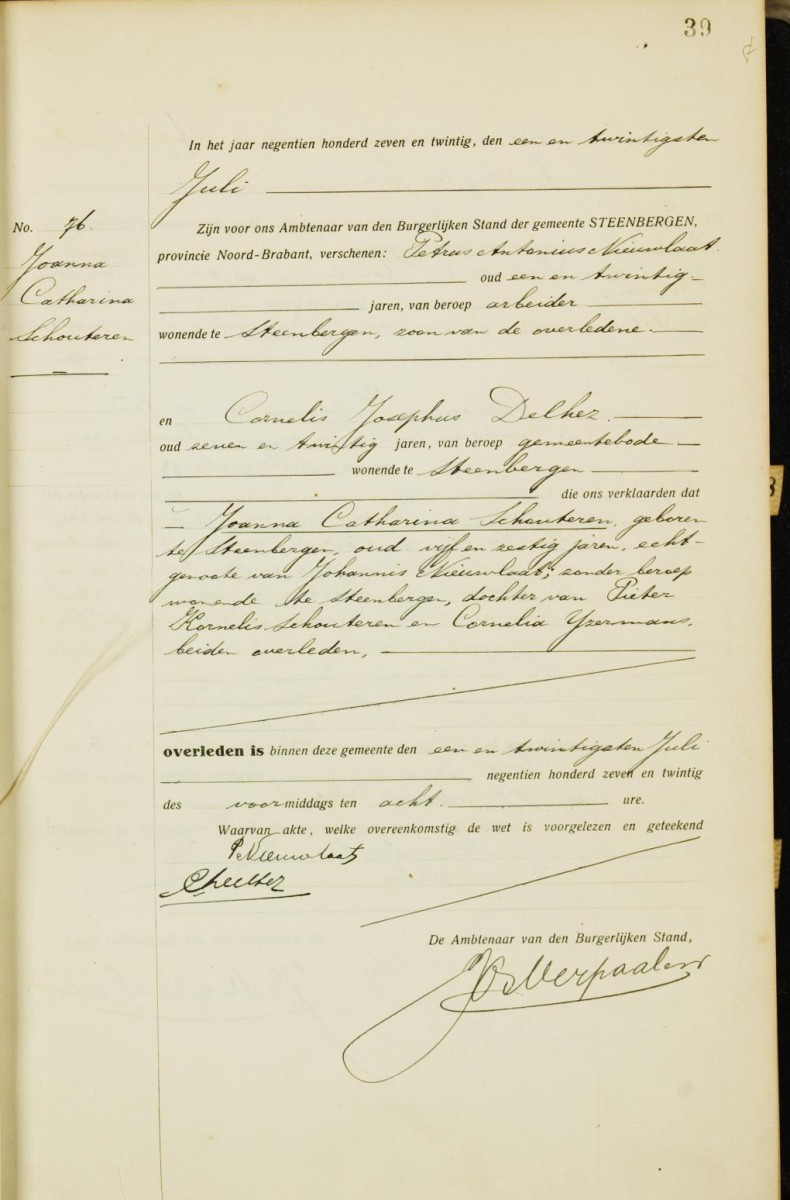 39
In het jaar negentien honderd zeven en twintig, den een en twintigsten
Juli
No. 76.
Joanna
Catharina
Schouteren
Zijn voor ons Ambtenaar van den Burgerlijken Stand der gemeente STEENBERGEN,
provincie Noord-Brabant, verschenen: Petrus Antonius Nieuwlaat
oud een en twintig
jaren, van beroep arbeider
wonende te Steenbergen, zoon van de overledene.
en Cornelis Josephus Delhez.
oud zeven en twintig jaren, van beroep gemeentebode
wonende te Steenbergen
die ons verklaarden dat
Joanna Catharina Schouteren, geboren
te Steenbergen, oud vijf en zestig jaren, echt-
genoote van Johannis Nieuwlaat, zonder beroep
wonende te Steenbergen, dochter van Pieter
Kornelis Schouteren en Cornelia Yzermans,
beiden overleden,
overleden is binnen deze gemeente den een en twintigsten Juli
negentien honderd zeven en twintig
des voormiddags ten acht. ure.
Waarvan akte, welke overeenkomstig de wet is voorgelezen en geteekend
P Nieuwlaat
De Ambtenaar van den Burgerlijken Stand,
Verpaalen